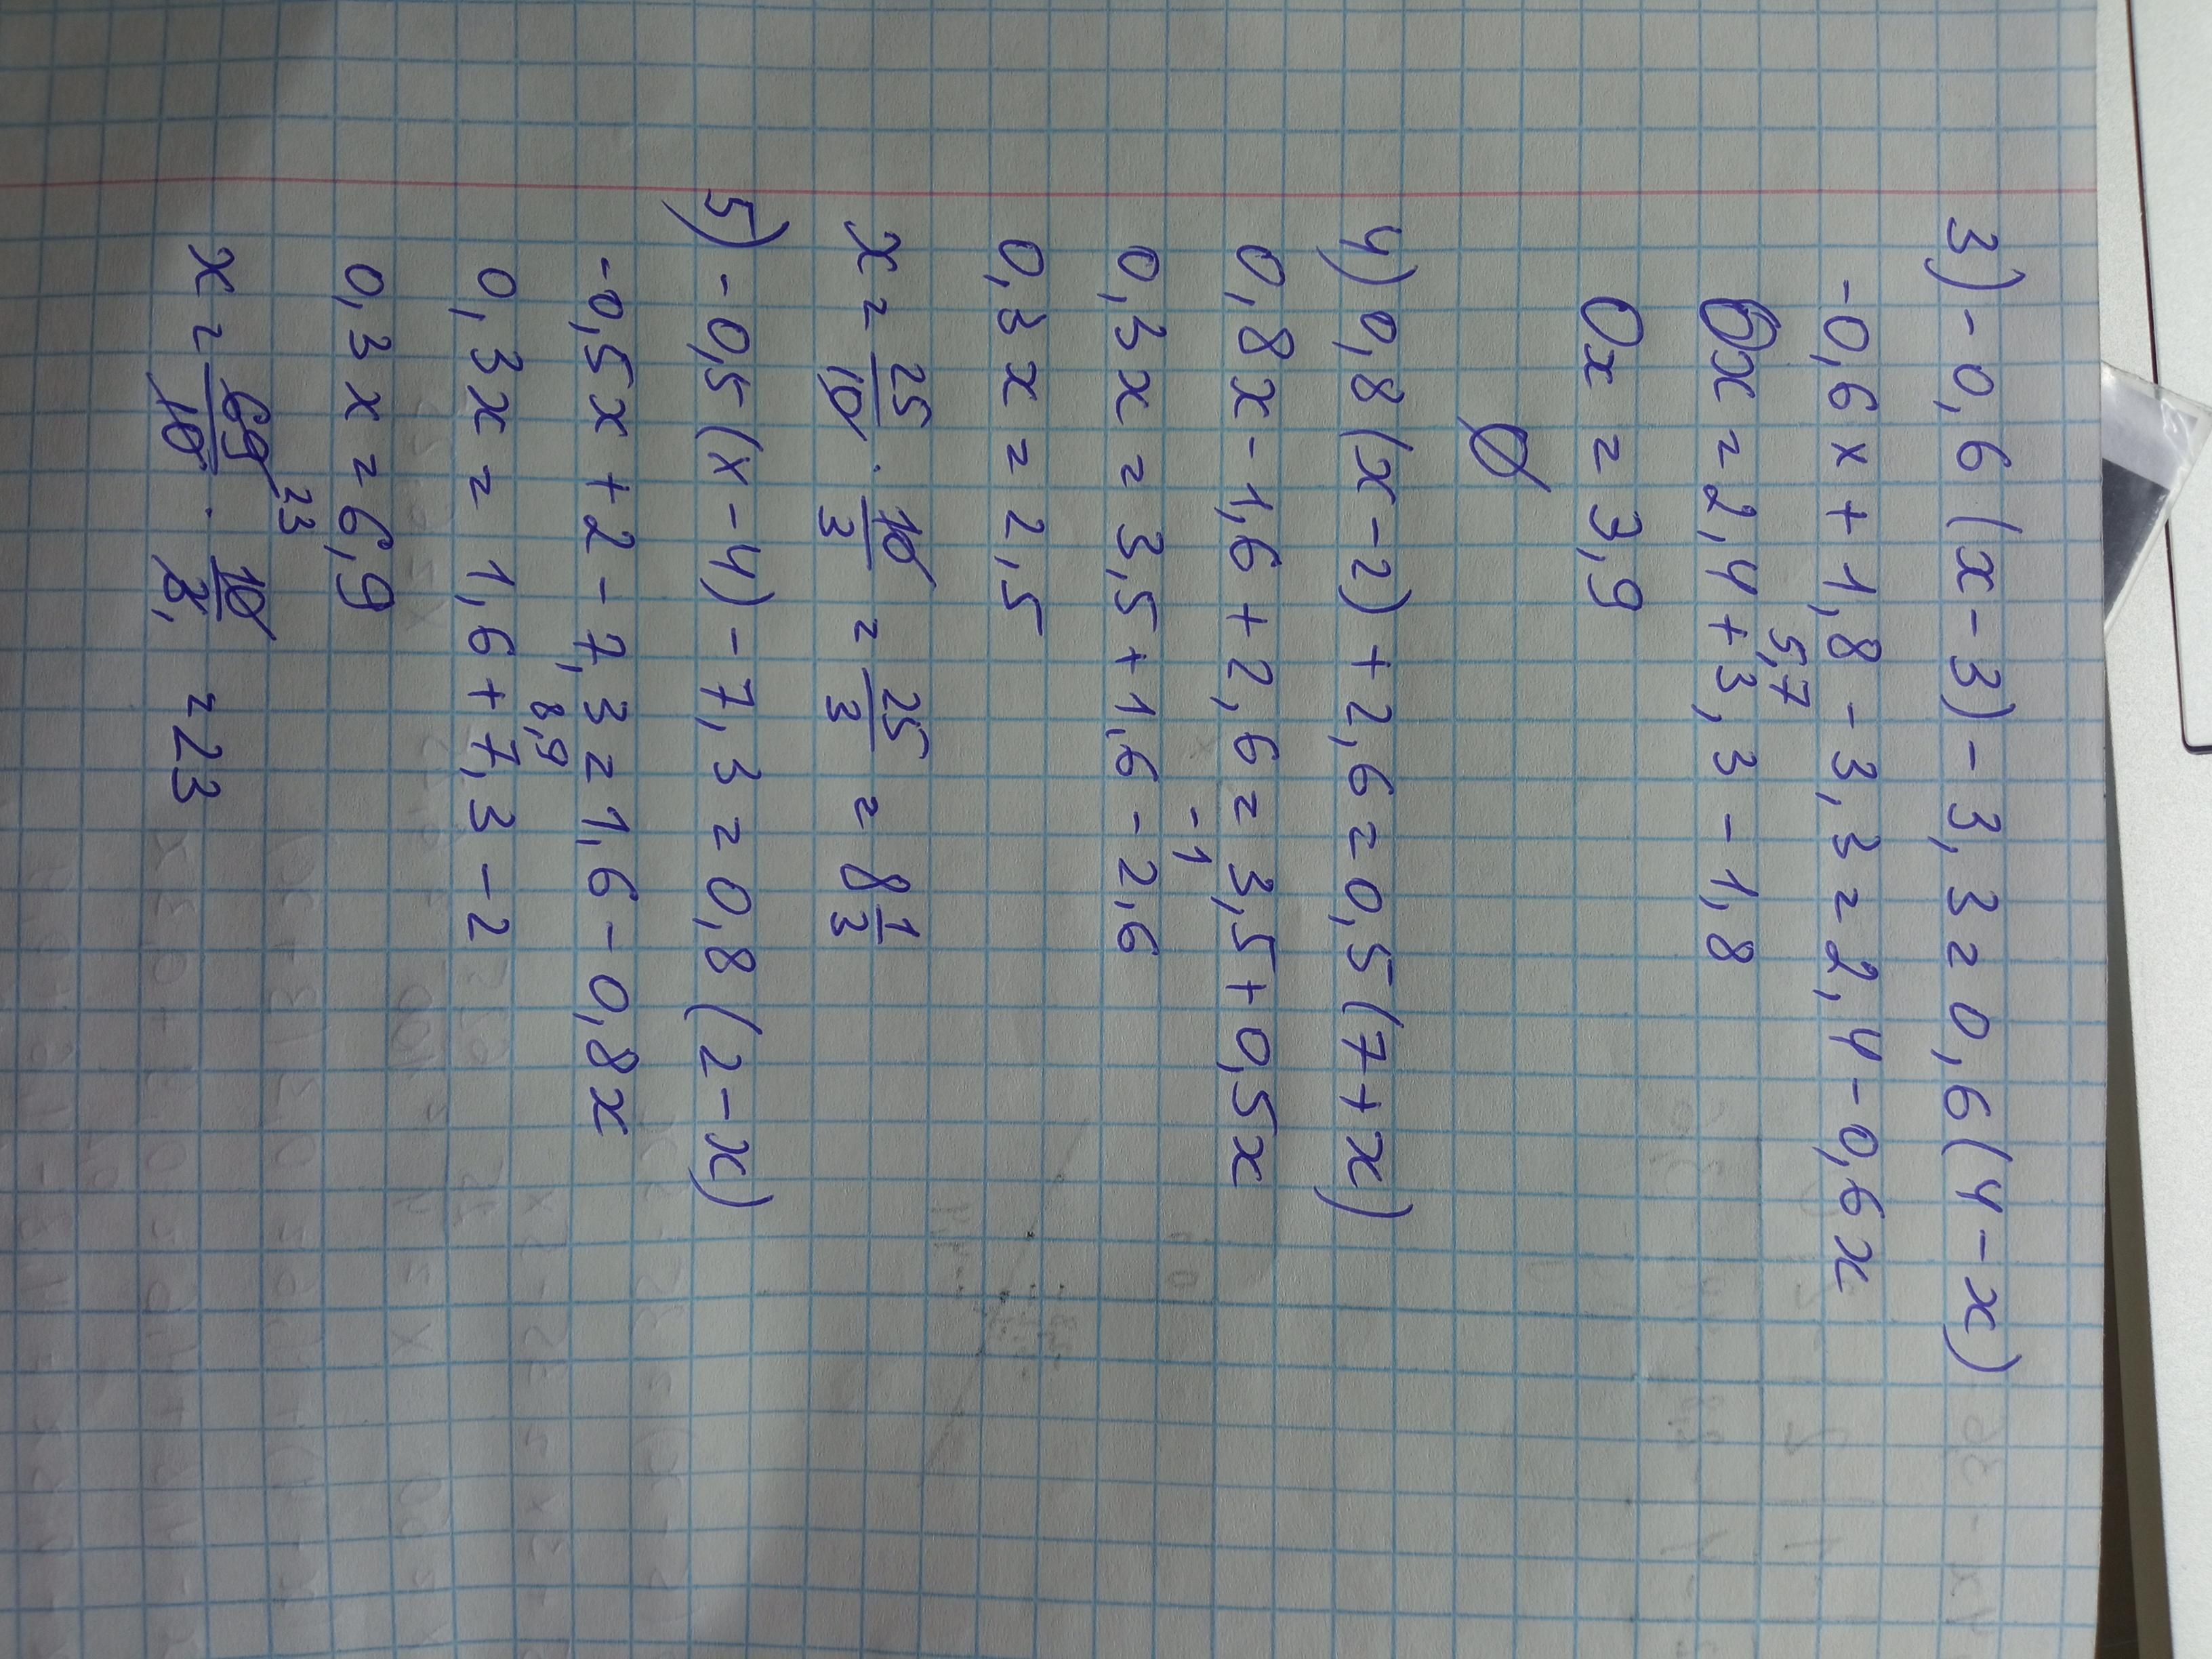 3) -0,6(x-3)-3,3=0,6(4-x)
-0,6x+1,8-3,3=2,4-0,6x
5,7
0x=2,4+3,3-1,8
0x=3,9
∅
4) 0,8(x-2)+2,6=0,5(7+x)
0,8x-1,6+2,6=3,5+0,5x
-1
0,3x=3,5+1,6-2,6
0,3x=2,5
x=25/10·10/3=25/3=8 1/3
5) -0,5(x-4)-7,3=0,8(2-x)
-0,5x+2-7,3=1,6-0,8x
8,9
0,3x=1,6+7,3-2
0,3x=6,9
23
x=69/10·10/3=23